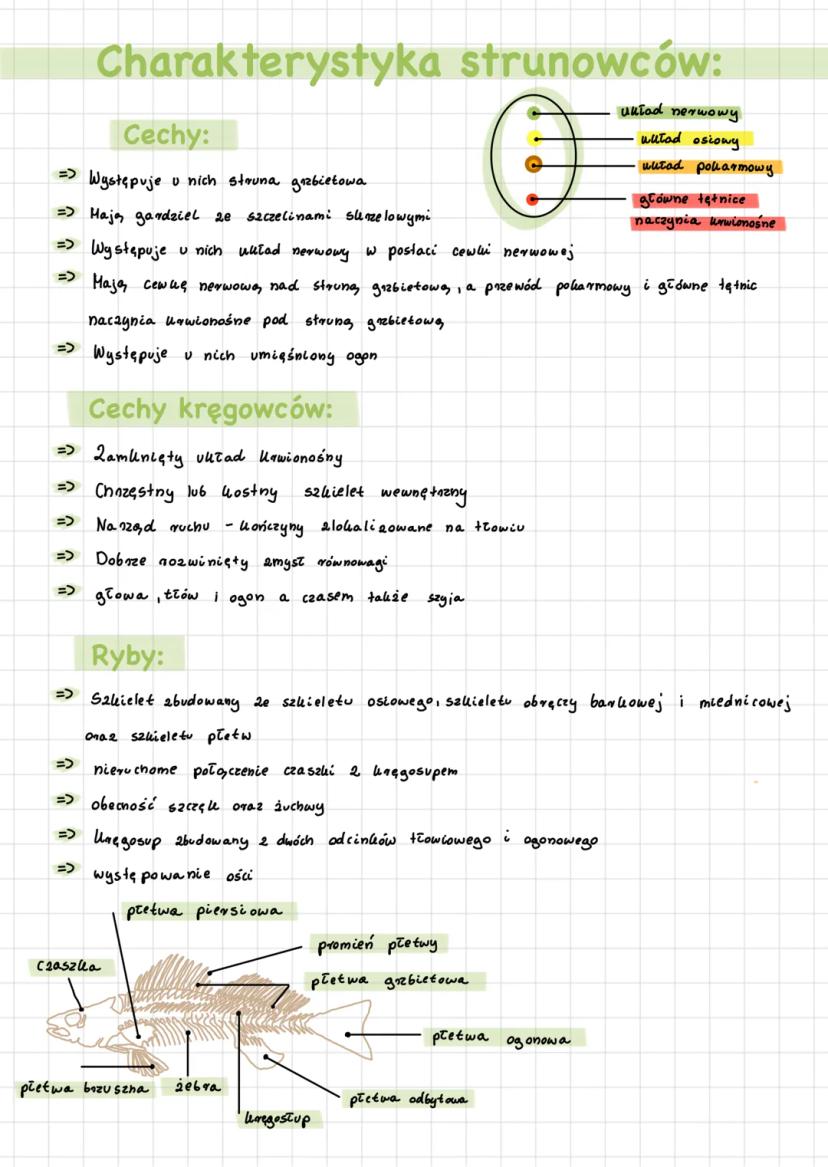 Charakterystyka strunowców:
układ nerwowy
Cechy:
układ osiowy
układ pokarmowy
=> Występuje u nich struna grzbietowa
główne tętnice
=> Mają gardziel ze szczelinami skrzelowymi
naczynia krwionośne
=> Występuje u nich układ nerwowy w postaci cewki nerwowej
=> Mają cewkę nerwową nad struną grzbietową, a przewód pokarmowy i główne tętnic
naczynia krwionośne pod struną grzbietową
=> Występuje u nich umięśniony ogon
Cechy kręgowców:
=> Zamknięty układ krwionośny
=> Chrzęstny lub kostny szkielet wewnętrzny
=> Narząd ruchu - kończyny zlokalizowane na tłowiu
=> Dobrze rozwinięty zmysł równowagi
=> głowa, tłów i ogon a czasem także szyja
Ryby:
=> Szkielet zbudowany ze szkieletu osiowego, szkieletu obręczy barkowej i miednicowej
oraz szkieletu płetw
=> nieruchome połączenie czaszki z kręgosupem
=> obecność szczęk oraz żuchwy
=> kręgosup zbudowany z dwóch odcinków tłowiowego i ogonowego
=> występowanie ości
płetwa piersiowa
promień płetwy
czaszka
płetwa grzbietowa
płetwa ogonowa
płetwa brzuszna
żebra
płetwa odbytowa
kręgostup